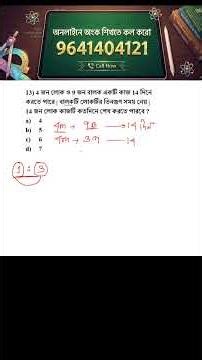 অনলাইনে অংক শিখতে কল করো
9641404121
Call Now
13) 4 জন লোক ও 9 জন বালক একটি কাজ 14 দিনে
করতে পারে। বালকটি লোকটির তিনগুণ সময় নেয়।
14 জন লোক কাজটি কতদিনে শেষ করতে পারবে ?
a) 4
b) 5
c) 6
d) 7
1 : 3